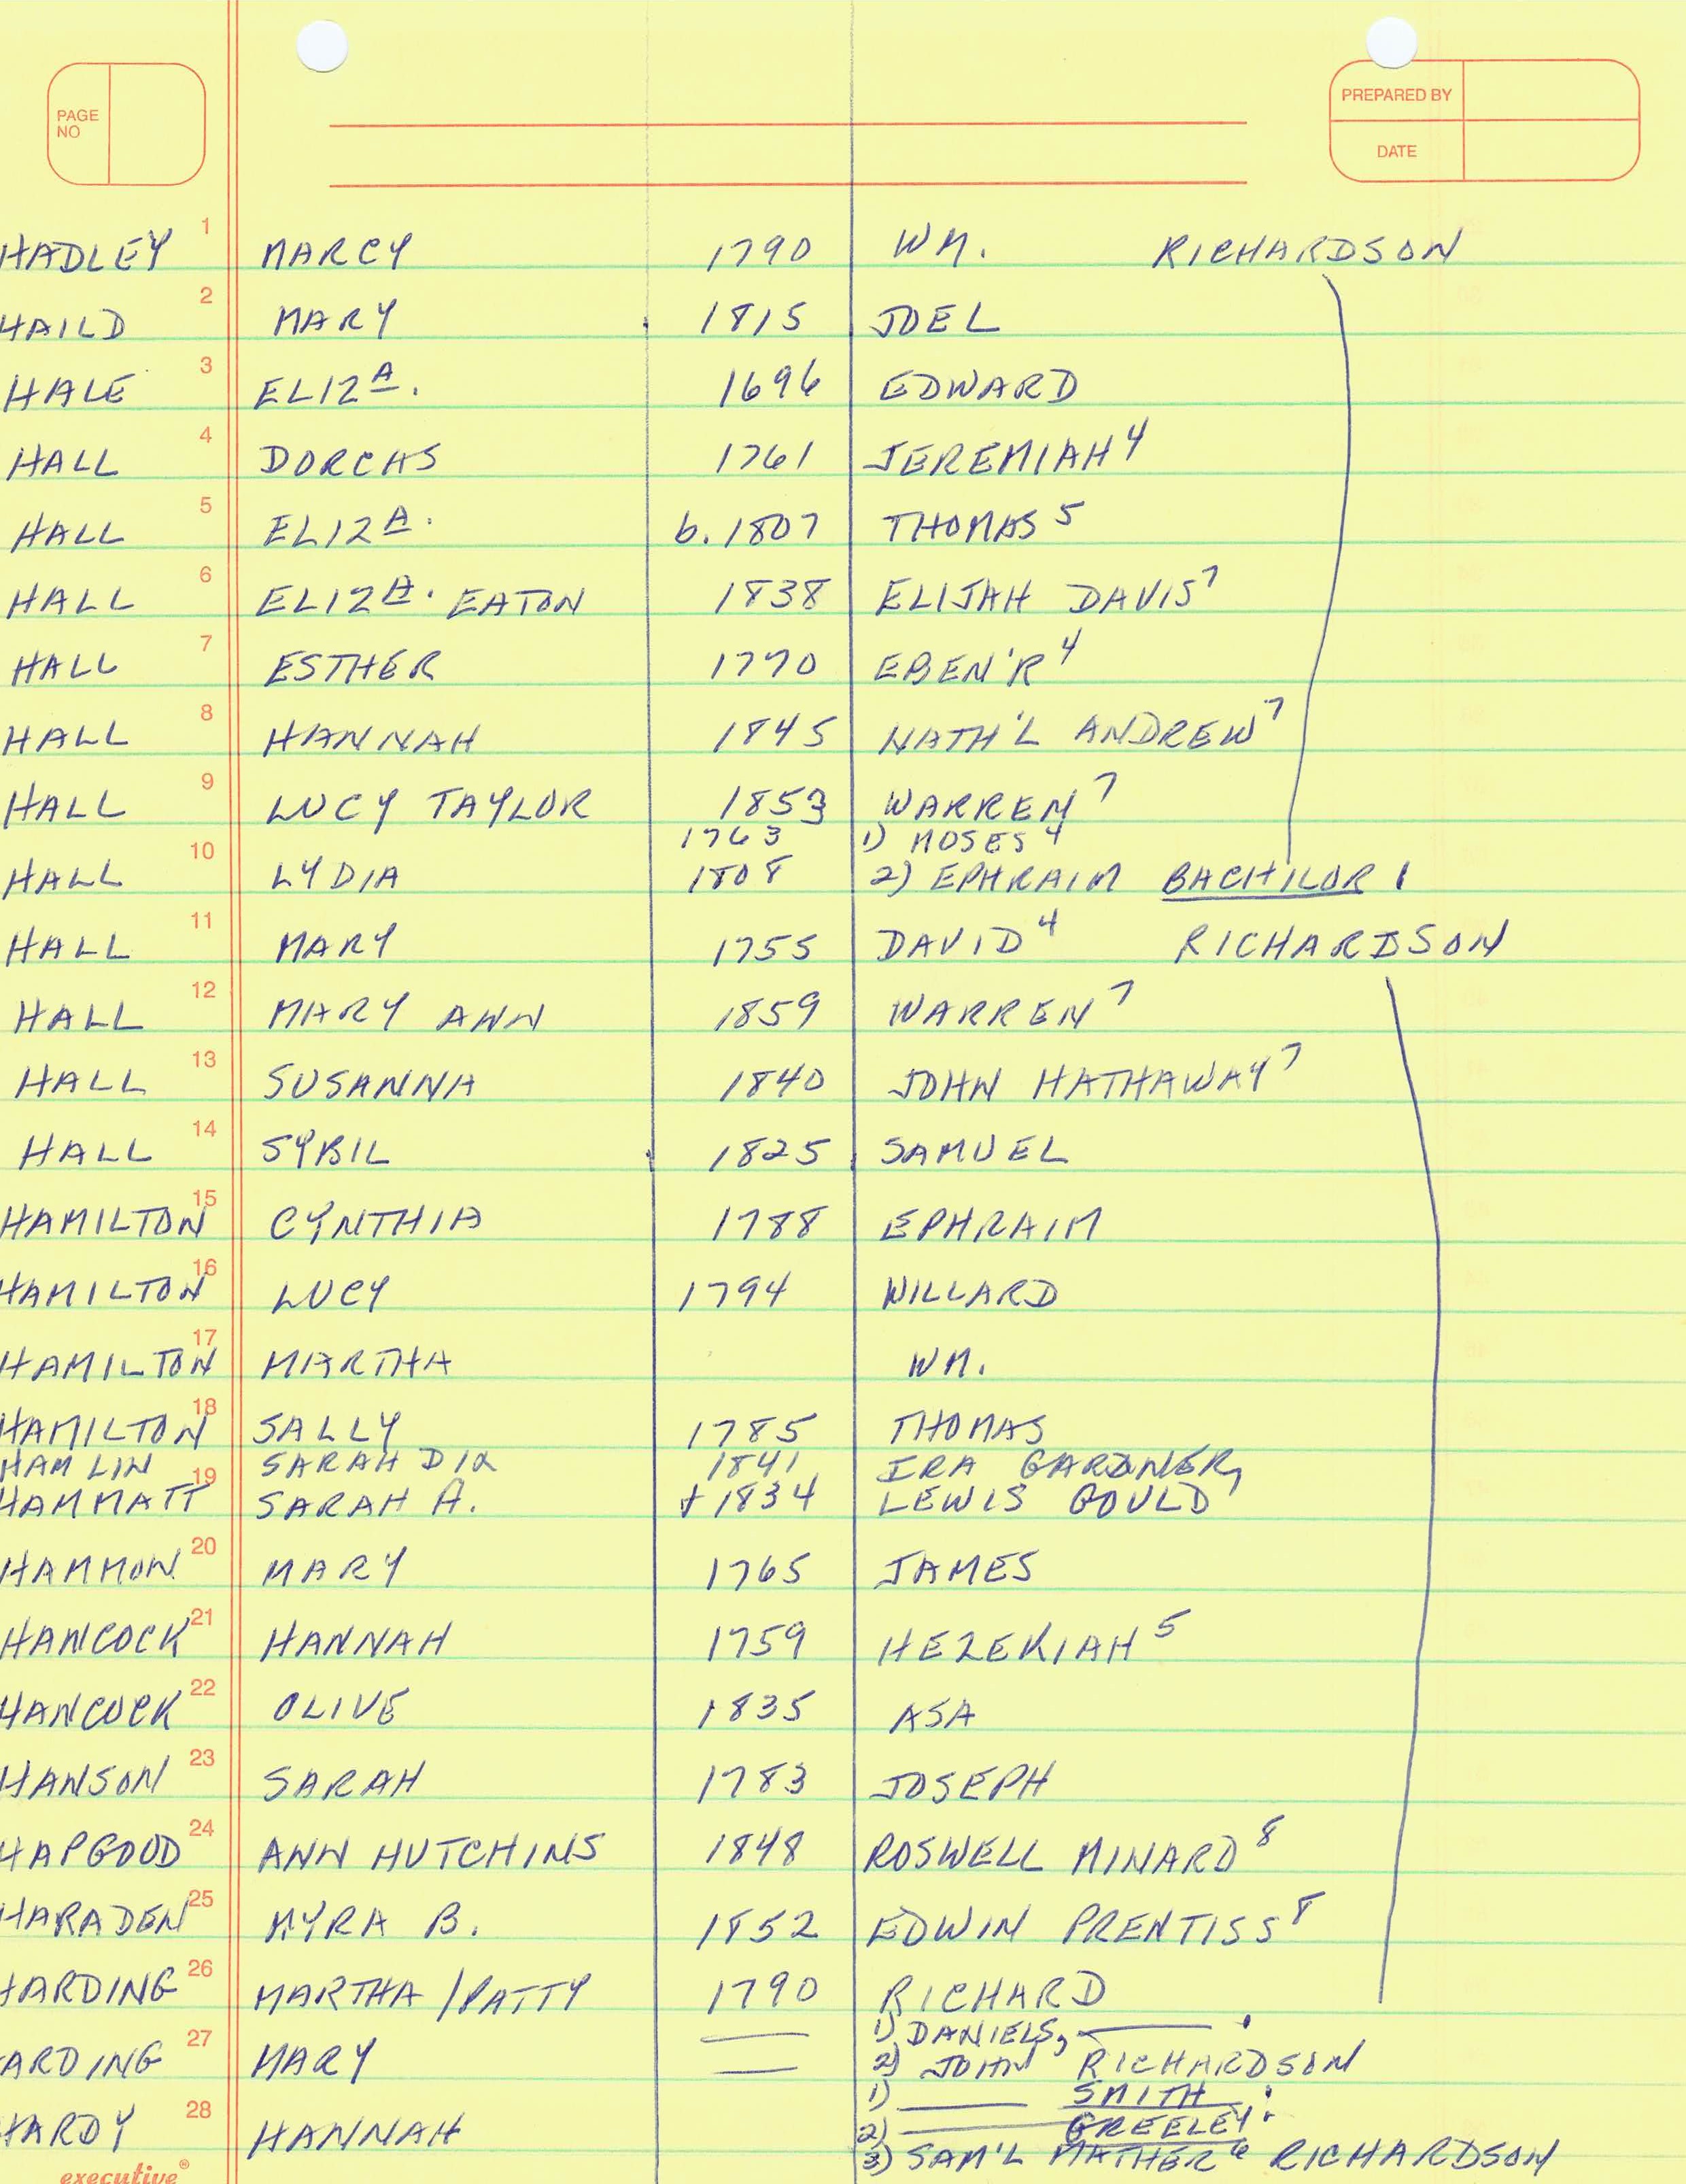 PAGE NO
PREPARED BY
DATE
HADLEY 1 MARCY 1790 WM. RICHARDSON
HAILD 2 MARY 1815 JOEL
HALE 3 ELIZA. 1696 EDWARD
HALL 4 DORCAS 1761 JEREMIAH 4
HALL 5 ELIZA. b. 1807 THOMAS 5
HALL 6 ELIZA. EATON 1838 ELIJAH DAVIS 7
HALL 7 ESTHER 1770 EBEN'R 4
HALL 8 HANNAH 1845 NATH'L ANDREW 7
HALL 9 LUCY TAYLOR 1853 WARREN 7
1763 1) MOSES 4
HALL 10 LYDIA 1808 2) EPHRAIM BACHILOR
HALL 11 MARY 1755 DAVID 4 RICHARDSON
HALL 12 MARY ANN 1859 WARREN 7
HALL 13 SUSANNA 1840 JOHN HATHAWAY 7
HALL 14 SYBIL 1825 SAMUEL
HAMILTON 15 CYNTHIA 1788 EPHRAIM
HAMILTON 16 LUCY 1794 WILLARD
HAMILTON 17 MARTHA WM.
HAMILTON 18 SALLY 1785 THOMAS
HAMLIN SARAH DIX 1841 IRA GARDNER
HAMMATT 19 SARAH A. + 1834 LEWIS GOULD 7
HAMMON 20 MARY 1765 JAMES
HANCOCK 21 HANNAH 1759 HEZEKIAH 5
HANCOCK 22 OLIVE 1835 ASA
HANSON 23 SARAH 1783 JOSEPH
HAPGOOD 24 ANN HUTCHINS 1848 ROSWELL MINARD 8
HARADEN 25 MYRA B. 1852 EDWIN PRENTISS 8
HARDING 26 MARTHA / PATTY 1790 RICHARD
1) DANIELS,
ARDING 27 MARY 2) JOHN RICHARDSON
1) SMITH
2) GREELEY
HARDY 28 HANNAH 3) SAM'L MATHER 6 RICHARDSON
executive®